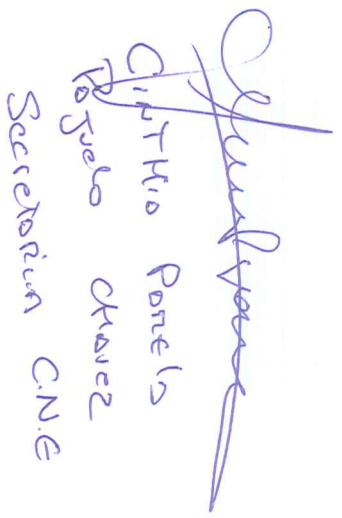 Cinthia Pamela
Rojuelo Chavez
Secretaria C.N.E